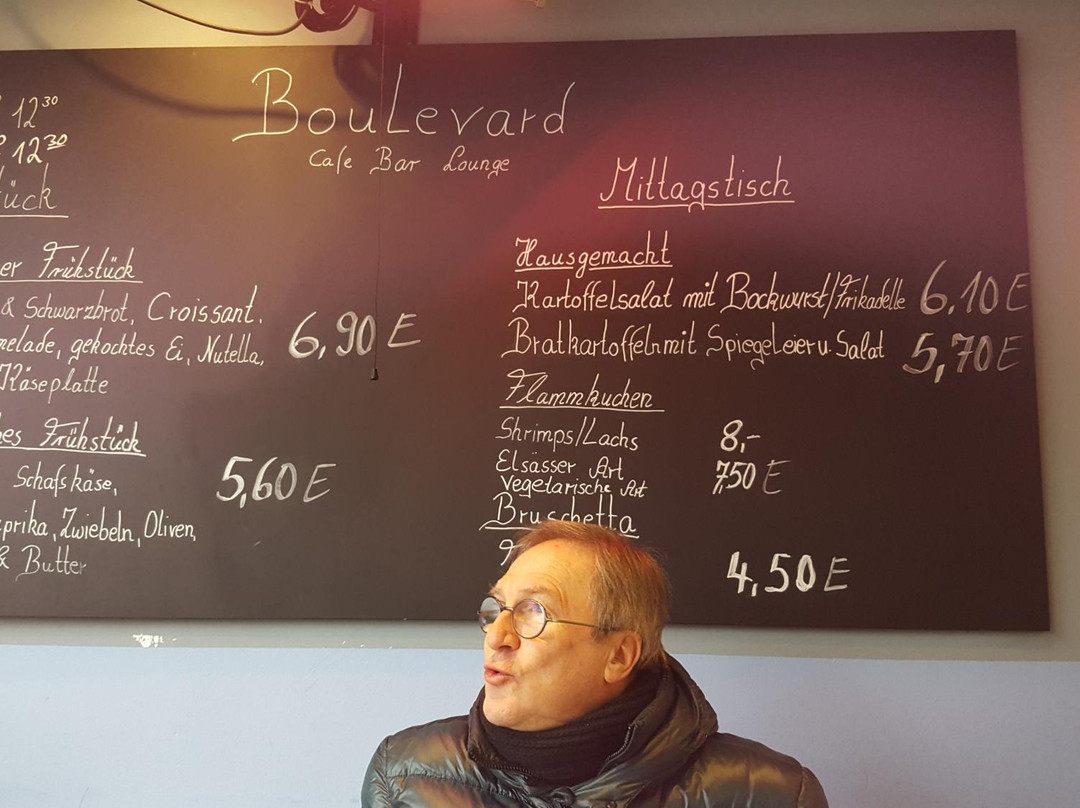 12³⁰
12³⁰
Boulevard
Cafe Bar Lounge
ück
er Frühstück
& Schwarzbrot, Croissant.
melade, gekochtes Ei, Nutella, 6,90 E
Käseplatte
hes Frühstück
Schafskäse, 5,60 E
aprika, Zwiebeln, Oliven,
& Butter
Mittagstisch
Hausgemacht
Kartoffelsalat mit Bockwurst/Frikadelle 6.10 E
Bratkartoffeln mit Spiegeleier u. Salat 5,70 E
Flammkuchen
Shrimps/Lachs 8,-
Elsässer Art 7,50 E
Vegetarische Art
Bruschetta
4,50 E